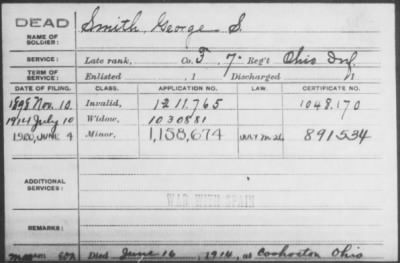 DEAD
NAME OF SOLDIER: Smith, George S.
SERVICE: Late rank, Co. F, 7" Reg't Ohio Inf.
TERM OF SERVICE: Enlisted , 1 Discharged , 1
DATE OF FILING. CLASS. APPLICATION NO. LAW. CERTIFICATE NO.
1898 Nov. 10 Invalid, 1211.765 1048.170
1914 July 10 Widow, 1030881
1920, JUNE 4 Minor, 1,158,674 891534
ADDITIONAL SERVICES:
WAR WITH SPAIN
REMARKS:
Died June 16, 1914, at Coshocton Ohio